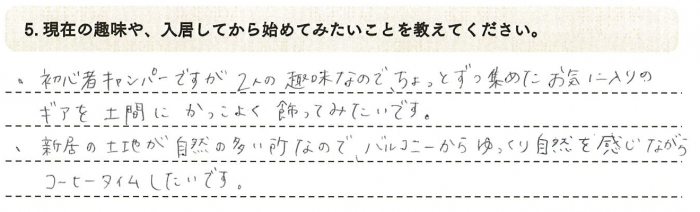 5. 現在の趣味や、入居してから始めてみたいことを教えてください。
・初心者キャンパーですが 2人の趣味なので、ちょっとずつ集めたお気に入りの
ギアを土間にかっこよく飾ってみたいです。
・新居の土地が自然の多い所なので、バルコニーからゆっくり自然を感じながら
コーヒータイムしたいです。